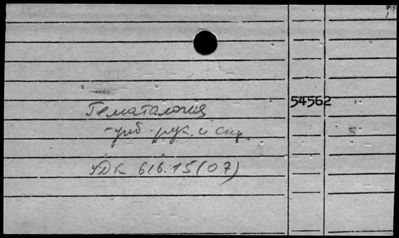 Гематология 54562
-учб. рук. и спр.
УДК 616.15(07)